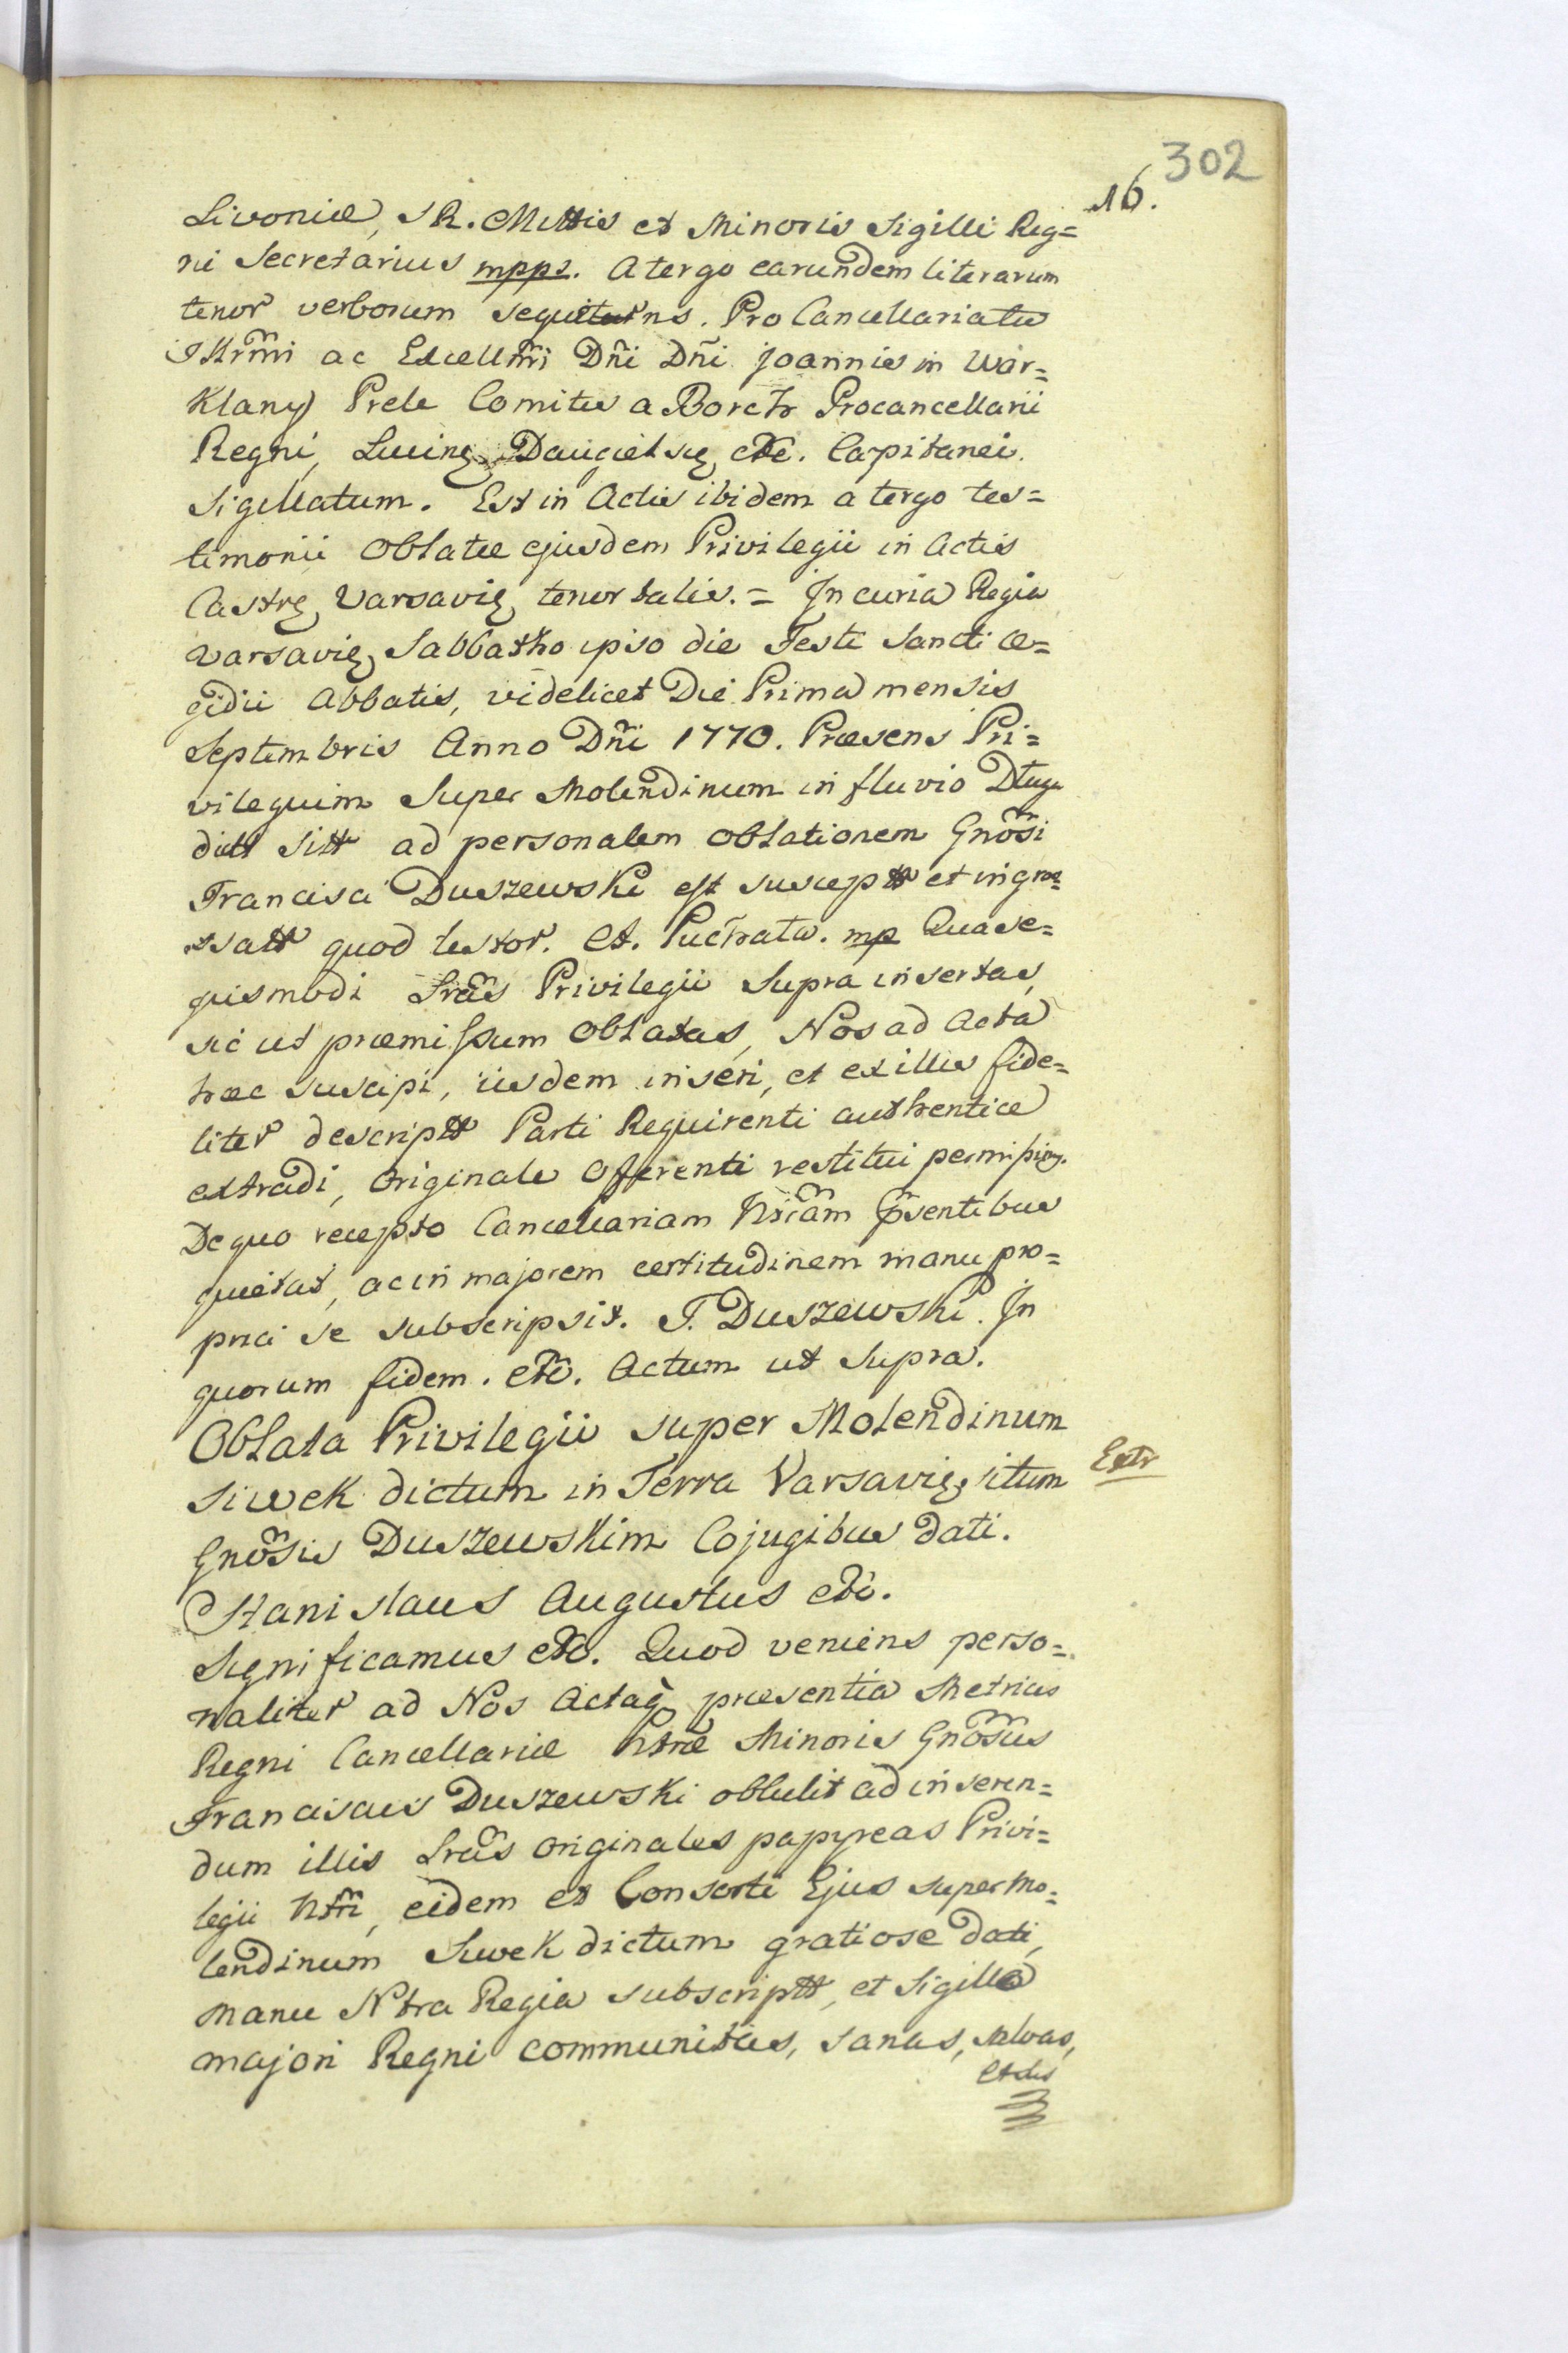 302
16.
Livoniæ, S R. Mttis et Minoris Sigilli Reg=
ni Secretarius mpps. A tergo earundem literarum
tenor verborum sequitur ns. Pro Cancellariatu
Illrm̃i ac Excellm̃i Dñi Dñi Joannis in War=
Klany Prele Comitis a Borch Procancellarii
Regni, Lucinę, etc. Capitanei.
Sigillatum. Est in Actis ibidem a tergo tes=
timonii Oblatæ ejusdem Privilegii in Actis
Castrę Varsavię, tenor talis. = In curia Regia
Varsavię, Sabbatho ipso die Festi Sancti Æ=
gidii Abbatis, videlicet Die Prima mensis
Septembris Anno Dñi 1770. Præsens Pri=
vilegium Super Molendinum in fluvio Długa
dictt sitt ad personalem Oblationem Gnõsi
Francisci Duszewski est susceptt et ingro=
ssatt quod testor. A. Puchata. mp Quase=
quismodi Lrãs Privilegii Supra insertas,
sic ut præmissum Oblatas, Nos ad Acta
hæc suscipi, iisdem inseri, et ex illis fide=
liter descriptt Parti Requirenti authentice
extradi, Originale Offerenti restitui permisimus.
De quo recepto Cancellariam Nsrãm p̃sentibus
quietat, ac in majorem certitudinem manu pro=
pria se subscripsit. F. Duszewski. In
quorum fidem. etc. Actum ut Supra.
Oblata Privilegii super Molendinum
Siwek dictum in Terra Varsavię, situm
Extr
Gnõsis Duszewskim Cojugibus dati.
Stanislaus Augustus etc.
Significamus etc. Quod veniens perso=
naliter ad Nos Actaq̃ præsentia Metrices
Regni Cancellariæ Ntræ Minoris Gnõsus
Franciscus Duszewski obtulit ad inseren=
dum illis Lrãs Originales papyreas Privi=
legii Ntri, eidem et Consorti Ejus super Mo=
lendinum Siwek dictum gratiose dati,
manu Ntra Regia subscriptt, et Sigillo
majori Regni communitas, sanas, salvas,